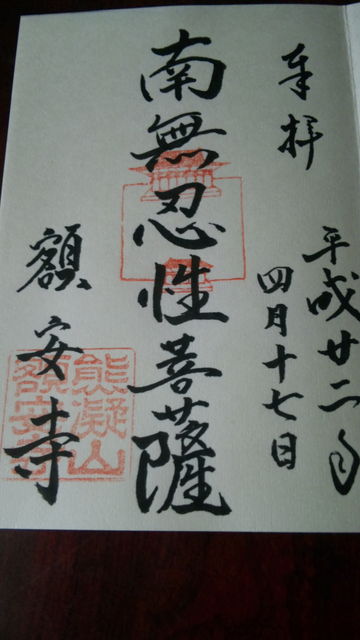 奉拝
平成廿二年
四月十七日
南無忍性菩薩
額安寺
熊凝山
額安寺